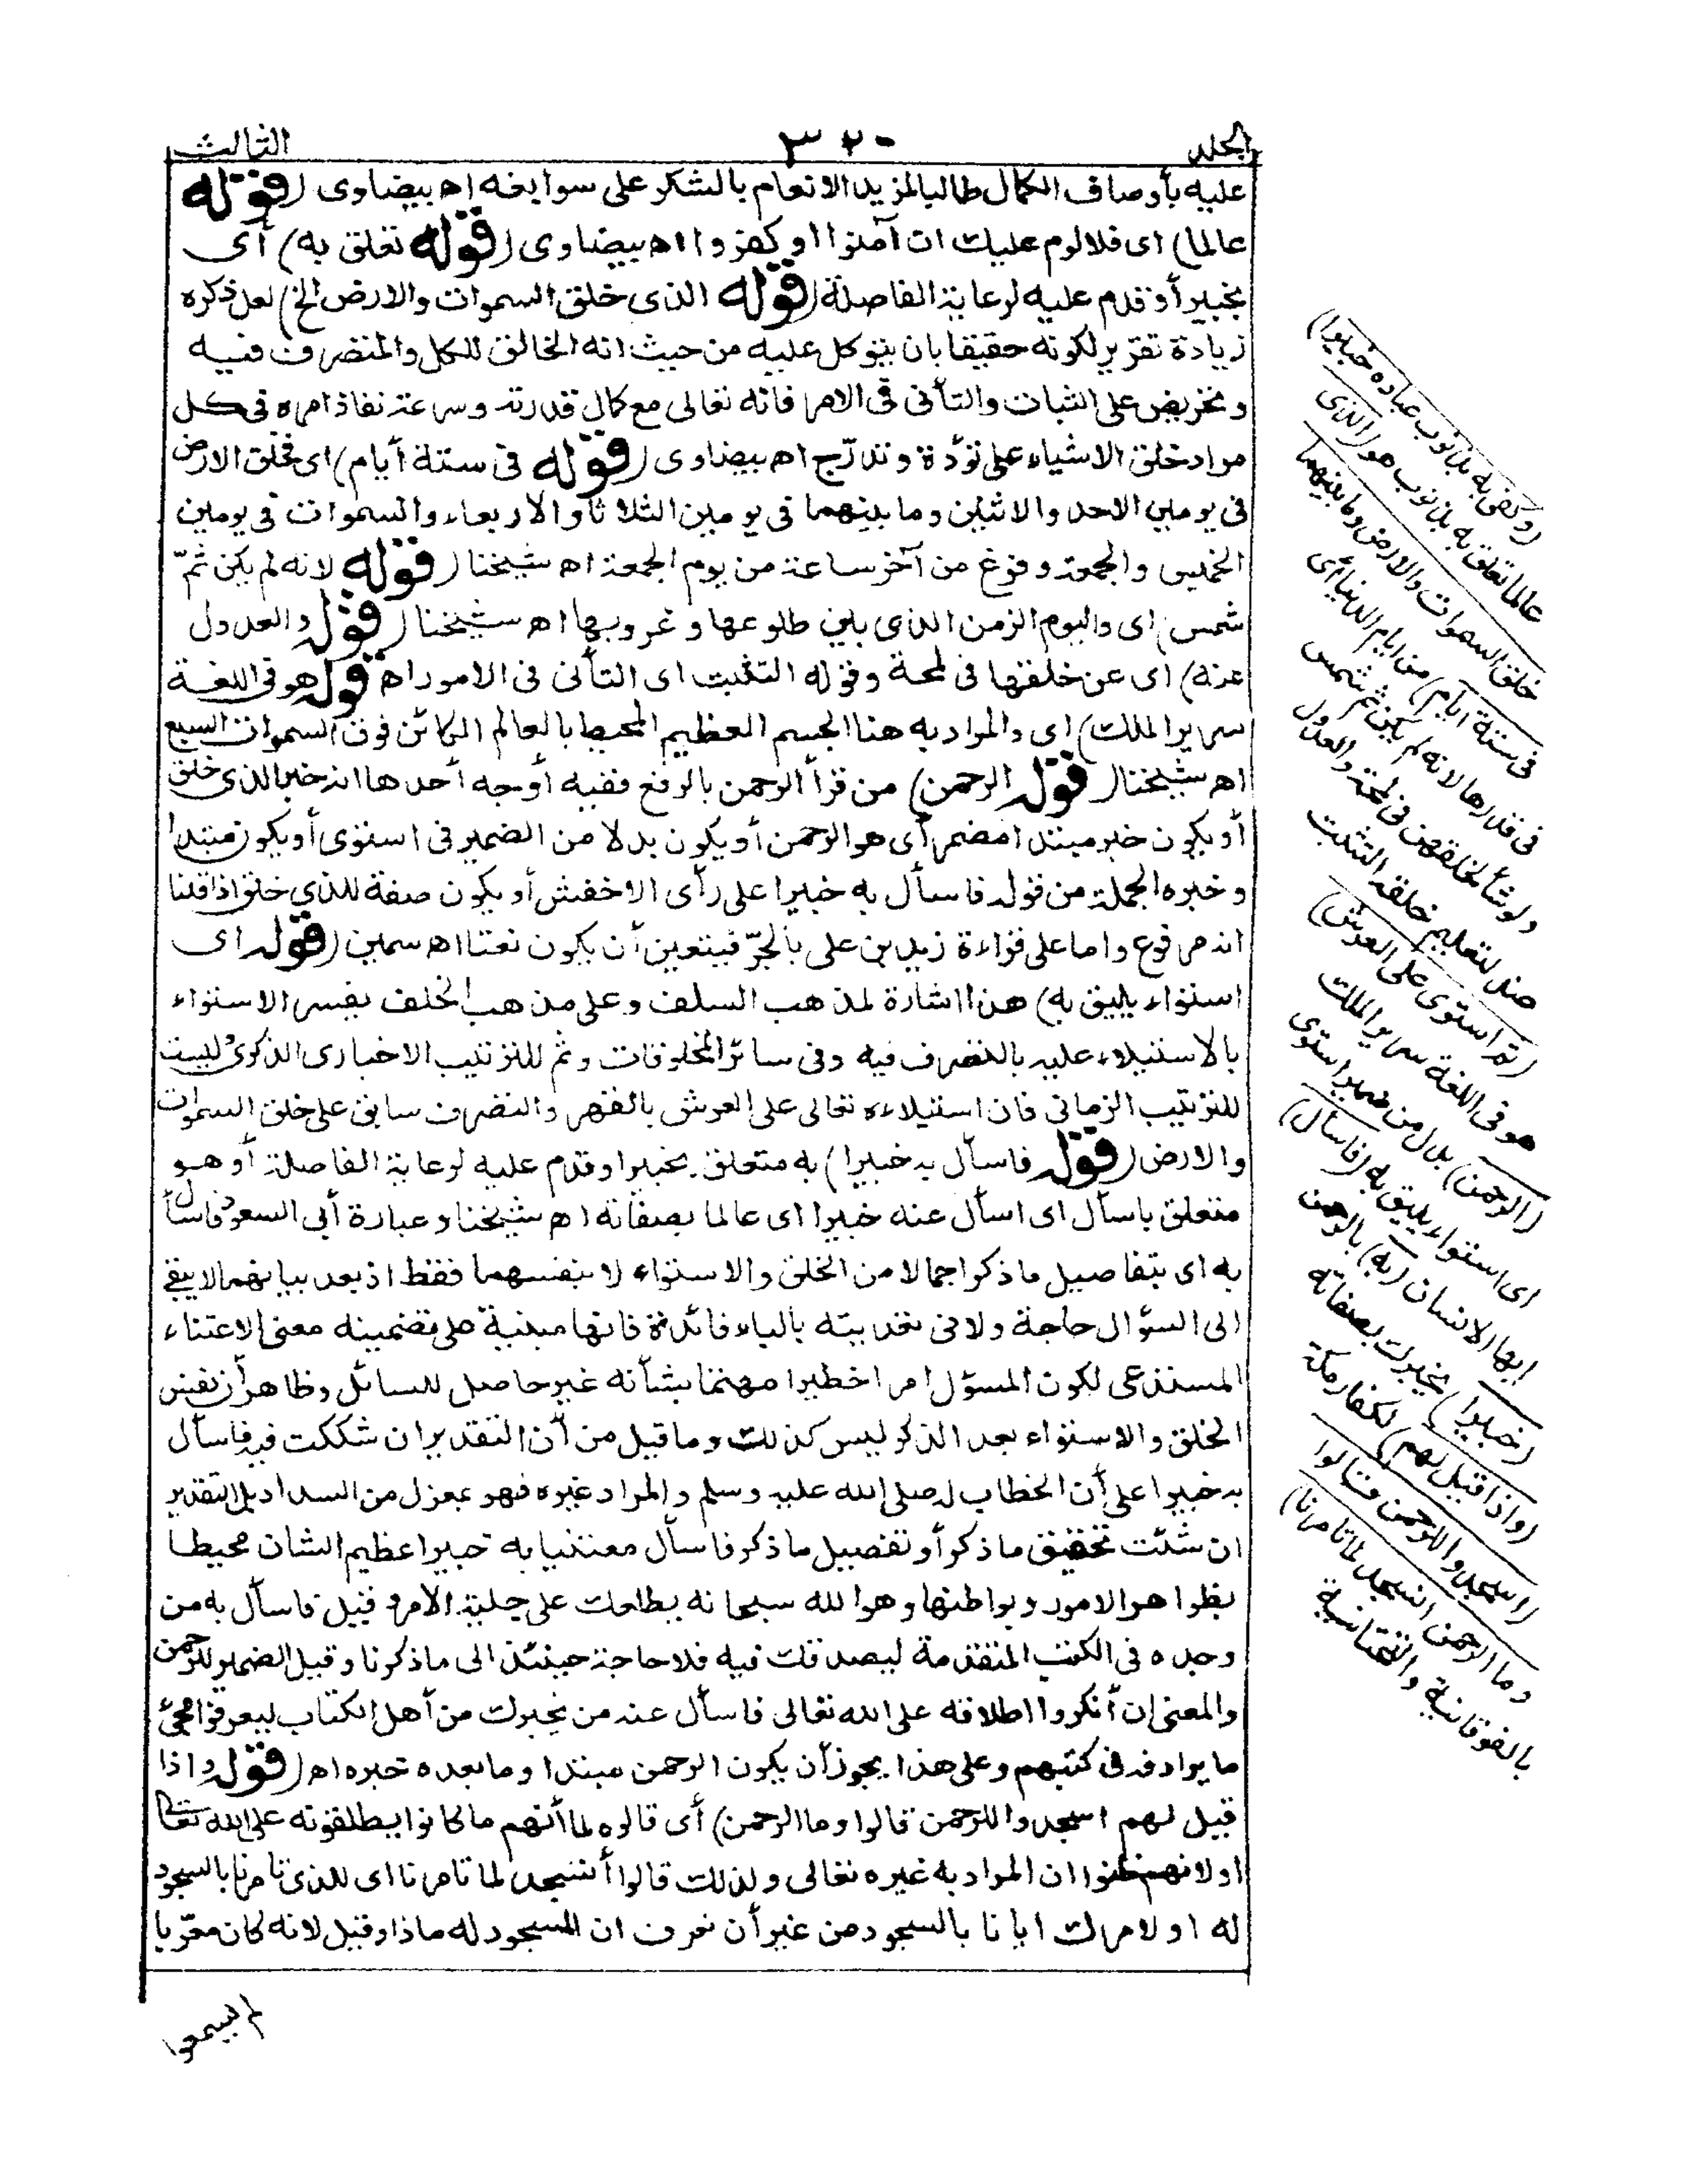 المجلد ٣٢٠ الثالث
عليه بأوصاف الكمال طالبا لمزيد الانعام بالشكر على سوابغه اه بيضاوى (قوله
عالما) اى فلا لوم عليك ان آمنوا او كفروا اه بيضاوى (قوله تعلق به) أى
بخبيرا وقدم عليه لرعاية الفاصلة (قوله الذى خلق السموات والارض الخ) لعل ذكره
زيادة تقرير لكونه حقيقا بان يتوكل عليه من حيث انه الخالق للكل والمتصرف فيه
وتحريض على الثبات والتأنى فى الامر فانه تعالى مع كمال قدرته وسرعة نفاذ امره فى كل
مراد خلق الاشياء على تؤدة وتدرّج اه بيضاوى (قوله فى ستة أيام) اى فخلق الارض
فى يومين الاحد والاثنين وما بينهما فى يومين الثلاثا والاربعاء والسموات فى يومين
الخميس والجمعة وفرغ من آخر ساعة من يوم الجمعة اه شيخنا (قوله لانه لم يكن ثمّ
شمس) اى واليوم الزمن الذى بين طلوعها وغروبها اه شيخنا (قوله والعدول
عنه) اى عن خلقها فى لمحة وقوله التثبت اى التأنى فى الامور اه (قوله هو فى اللغة
سرير الملك) اى والمراد به هنا الجسم العظيم المحيط بالعالم الكائن فوق السموات السبع
اه شيخنا (قوله الرحمن) من قرأ الرحمن بالرفع ففيه أوجه أحدها انه خبر الذى خلق
أو يكون خبر مبتدا مضمر أى هو الرحمن أو يكون بدلا من الضمير فى استوى أو يكون مبتدا
وخبره الجملة من قوله فاسأل به خبيرا على رأى الاخفش أو يكون صفة للذى خلق اذا قلنا
انه مرفوع واما على قراءة زيد بن على بالجرّ فيتعين أن يكون نعتا اه سمين (قوله اى
استواء يليق به) هذا اشارة لمذهب السلف وعلى مذهب الخلف يفسر الاستواء
بالاستيلاء عليه بالتصرف فيه وفى سائر المخلوقات وثم للترتيب الاخبارى الذكرى ليست
للترتيب الزمانى فان استيلاءه تعالى على العرش بالقهر والتصرف سابق على خلق السموات
والارض (قوله فاسأل به خبيرا) به متعلق بخبيرا وقدم عليه لرعاية الفاصلة أو هو
متعلق باسأل اى اسأل عنه خبيرا اى عالما بصفاته اه شيخنا وعبارة أبى السعود فاسأل
به اى بتفاصيل ما ذكر اجمالا من الخلق والاستواء لا بنفسهما فقط اذ بعد بيانهما لا يبقى
الى السؤال حاجة ولا فى تعديته بالباء فائدة فانها مبنية على تضمينه معنى الاعتناء
المستدعى لكون المسؤل امرا خطيرا مهتما بشأنه غير حاصل للسائل وظاهر أن نفس
الخلق والاستواء بعد الذكر ليس كذلك وما قيل من أن التقدير ان شككت فيه فاسأل
به خبيرا على أن الخطاب له صلى الله عليه وسلم والمراد غيره فهو بمعزل من السداد بل التقدير
ان شئت تحقيق ما ذكر أو تفصيل ما ذكر فاسأل معتنيا به خبيرا عظيم الشان محيطا
بظواهر الامور وبواطنها وهو الله سبحانه يطلعك على جلية الامر وقيل فاسأل به من
وجده فى الكتب المتقدمة ليصدقك فيه فلا حاجة حينئذ الى ما ذكرنا وقيل الضمير للرحمن
والمعنى ان أنكروا اطلاقه على الله تعالى فاسأل عنه من يخبرك من أهل الكتاب ليعرفوا مجئ
ما يرادفه فى كتبهم وعلى هذا يجوز أن يكون الرحمن مبتدا وما بعده خبره اه (قوله واذا
قيل لهم اسجدوا للرحمن قالوا وما الرحمن) أى قالوه لما أنهم ما كانوا يطلقونه على الله تعالى
او لانهم ظنوا ان المراد به غيره تعالى ولذلك قالوا أنسجد لما تامرنا اى للذى تامرنا بالسجود
له او لامرك ايانا بالسجود من غير أن نعرف ان المسجود له ماذا وقيل لانه كان معرّبا
لم يسمعوا
(وكفى به بذنوب عباده خبيرا)
عالما تعلق به بذنوب هو (الذى
خلق السموات والارض وما بينهما
فى ستة ايام) من ايام الدنيا أى
فى قدرها لانه لم يكن ثم شمس
ولو شاء لخلقهن فى لمحة والعدول
عنه لتعليم خلقه التثبت
(ثم استوى على العرش)
هو فى اللغة سرير الملك
(الرحمن) بدل من ضمير استوى
اى استواء يليق به (فاسأل)
ايها الانسان (به) بالرحمن
(خبيرا) يخبرك بصفاته
(واذا قيل لهم) لكفار مكة
(اسجدوا للرحمن قالوا
وما الرحمن انسجد لما تامرنا)
بالفوقانية والتحتانية